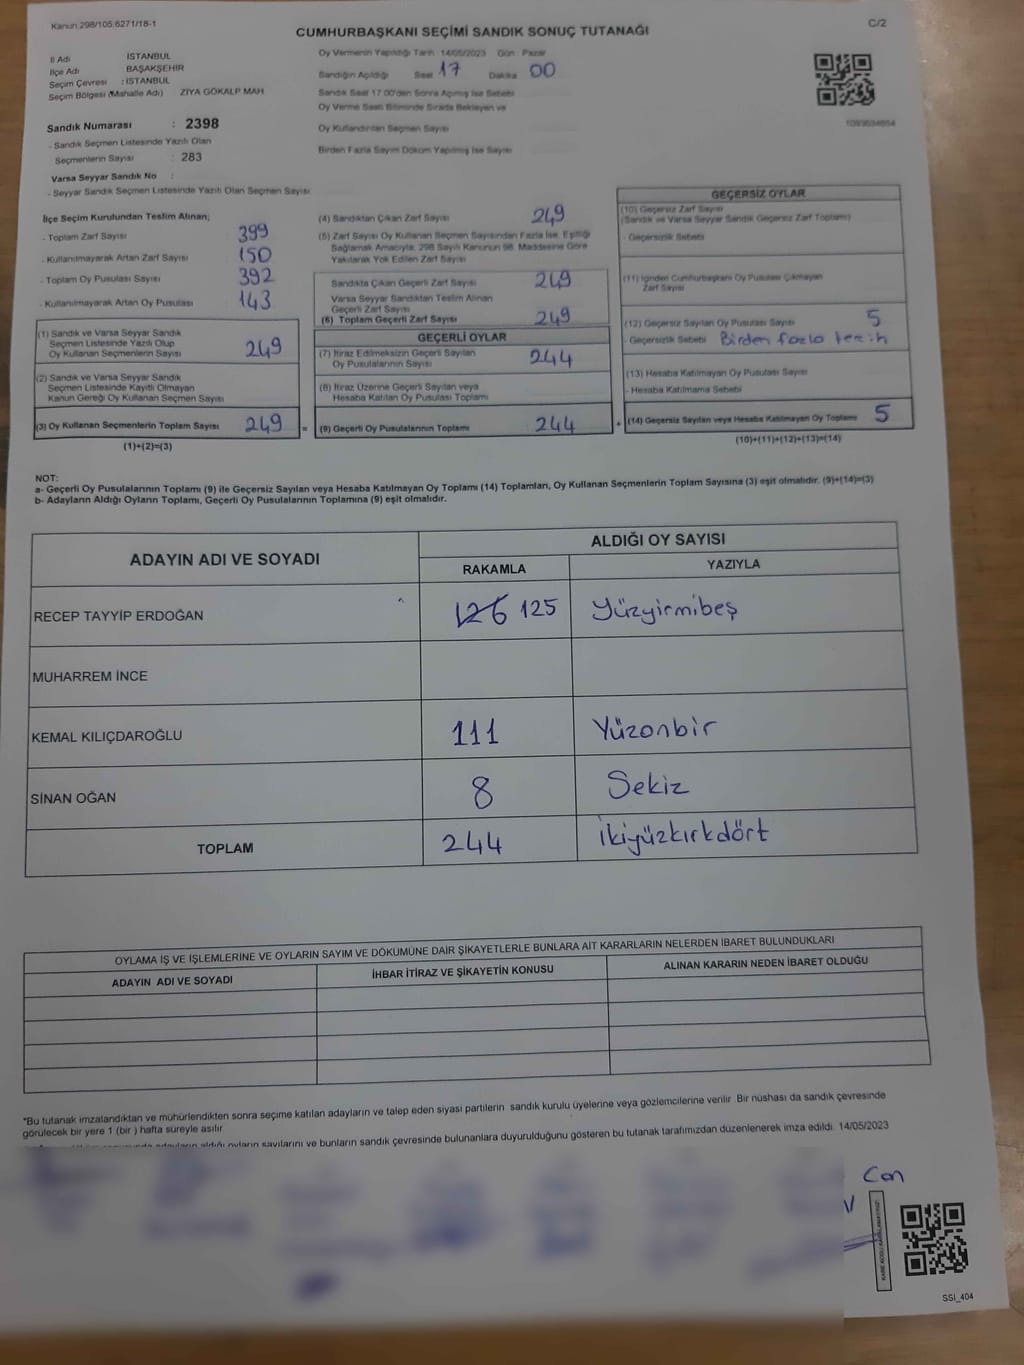 Kanun 298/105.6271/18-1
C/2
CUMHURBAŞKANI SEÇİMİ SANDIK SONUÇ TUTANAĞI
İl Adı İSTANBUL
İlçe Adı BAŞAKŞEHİR
Seçim Çevresi : İSTANBUL
Seçim Bölgesi (Mahalle Adı) ZİYA GÖKALP MAH
Oy Vermenin Yapıldığı Tarih 14/05/2023 Gün Pazar
Sandığın Açıldığı Saat 17 Dakika 00
Sandık Saat 17.00'den Sonra Açılmış İse Sebebi
Oy Verme Saati Bitiminde Sırada Bekleyen ve
Oy Kullandırılan Seçmen Sayısı
Birden Fazla Sayım Döküm Yapılmış İse Sayısı
Sandık Numarası : 2398
- Sandık Seçmen Listesinde Yazılı Olan
Seçmenlerin Sayısı : 283
Varsa Seyyar Sandık No :
- Seyyar Sandık Seçmen Listesinde Yazılı Olan Seçmen Sayısı
İlçe Seçim Kurulundan Teslim Alınan;
- Toplam Zarf Sayısı 399
- Kullanılmayarak Artan Zarf Sayısı 150
- Toplam Oy Pusulası Sayısı 392
- Kullanılmayarak Artan Oy Pusulası 143
(1) Sandık ve Varsa Seyyar Sandık
Seçmen Listesinde Yazılı Olup
Oy Kullanan Seçmenlerin Sayısı 249
(2) Sandık ve Varsa Seyyar Sandık
Seçmen Listesinde Kayıtlı Olmayan
Kanun Gereği Oy Kullanan Seçmen Sayısı
(3) Oy Kullanan Seçmenlerin Toplam Sayısı 249 =
(1)+(2)=(3)
(4) Sandıktan Çıkan Zarf Sayısı 249
(5) Zarf Sayısı Oy Kullanan Seçmen Sayısından Fazla İse, Eşitliği
Sağlamak Amacıyla, 298 Sayılı Kanunun 98. Maddesine Göre
Yakılarak Yok Edilen Zarf Sayısı
Sandıkta Çıkan Geçerli Zarf Sayısı 249
Varsa Seyyar Sandıktan Teslim Alınan
Geçerli Zarf Sayısı
(6) Toplam Geçerli Zarf Sayısı 249
GEÇERLİ OYLAR
(7) İtiraz Edilmeksizin Geçerli Sayılan
Oy Pusulalarının Sayısı 244
(8) İtiraz Üzerine Geçerli Sayılan veya
Hesaba Katılan Oy Pusulası Toplamı
(9) Geçerli Oy Pusulalarının Toplamı 244 +
GEÇERSİZ OYLAR
(10) Geçersiz Zarf Sayısı
(Sandık ve Varsa Seyyar Sandık Geçersiz Zarf Toplamı)
- Geçersizlik Sebebi
(11) İçinden Cumhurbaşkanı Oy Pusulası Çıkmayan
Zarf Sayısı
(12) Geçersiz Sayılan Oy Pusulası Sayısı 5
- Geçersizlik Sebebi Birden fazla tercih
(13) Hesaba Katılmayan Oy Pusulası Sayısı
- Hesaba Katılmama Sebebi
(14) Geçersiz Sayılan veya Hesaba Katılmayan Oy Toplamı 5
(10)+(11)+(12)+(13)=(14)
NOT:
a- Geçerli Oy Pusulalarının Toplamı (9) ile Geçersiz Sayılan veya Hesaba Katılmayan Oy Toplamı (14) Toplamları, Oy Kullanan Seçmenlerin Toplam Sayısına (3) eşit olmalıdır. (9)+(14)=(3)
b- Adayların Aldığı Oyların Toplamı, Geçerli Oy Pusulalarının Toplamına (9) eşit olmalıdır.
ADAYIN ADI VE SOYADI
ALDIĞI OY SAYISI
RAKAMLA YAZIYLA
RECEP TAYYİP ERDOĞAN 126 125 Yüzyirmibeş
MUHARREM İNCE
KEMAL KILIÇDAROĞLU 111 Yüzonbir
SİNAN OĞAN 8 Sekiz
TOPLAM 244 ikiyüzkırkdört
OYLAMA İŞ VE İŞLEMLERİNE VE OYLARIN SAYIM VE DÖKÜMÜNE DAİR ŞİKAYETLERLE BUNLARA AİT KARARLARIN NELERDEN İBARET BULUNDUKLARI
ADAYIN ADI VE SOYADI İHBAR İTİRAZ VE ŞİKAYETİN KONUSU ALINAN KARARIN NEDEN İBARET OLDUĞU
*Bu tutanak imzalandıktan ve mühürlendikten sonra seçime katılan adayların ve talep eden siyasi partilerin sandık kurulu üyelerine veya gözlemcilerine verilir. Bir nüshası da sandık çevresinde
görülecek bir yere 1 (bir) hafta süreyle asılır
adayların aldığı oyların sayılarını ve bunların sandık çevresinde bulunanlara duyurulduğunu gösteren bu tutanak tarafımızdan düzenlenerek imza edildi. 14/05/2023
Can
SSI_404